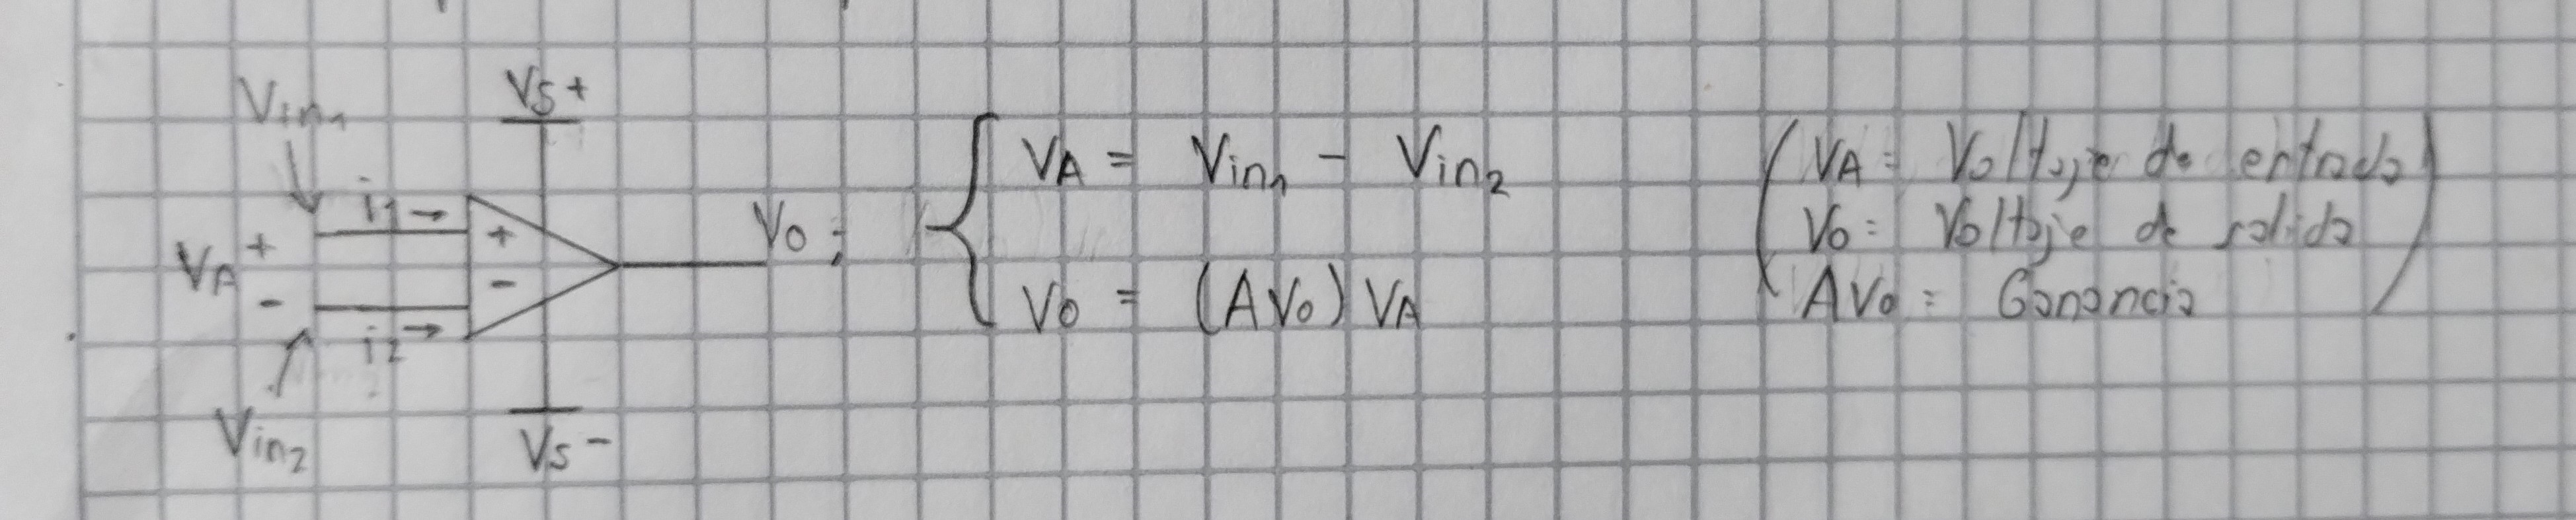 Vin1
Vs+
i1→
VA + -
+
-
i2→
Vin2
Vs-
Vo ;
VA = Vin1 - Vin2
Vo = (AVo) VA
VA = Voltaje de entrada
Vo = Voltaje de salida
AVo = Ganancia